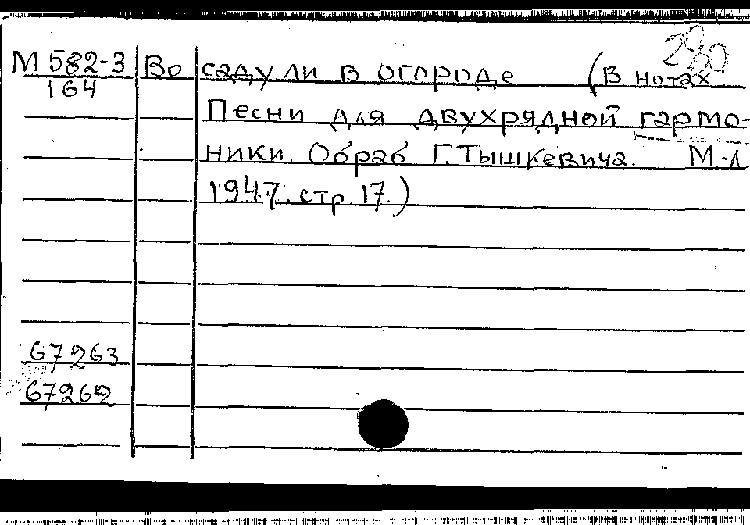 2930
М 582-3 Во саду ли в огороде (В нотах
164
Песни для двухрядной гармо-
ники. Обраб Г. Тышкевича. М-Л
1947. стр. 17.)
67263
67262